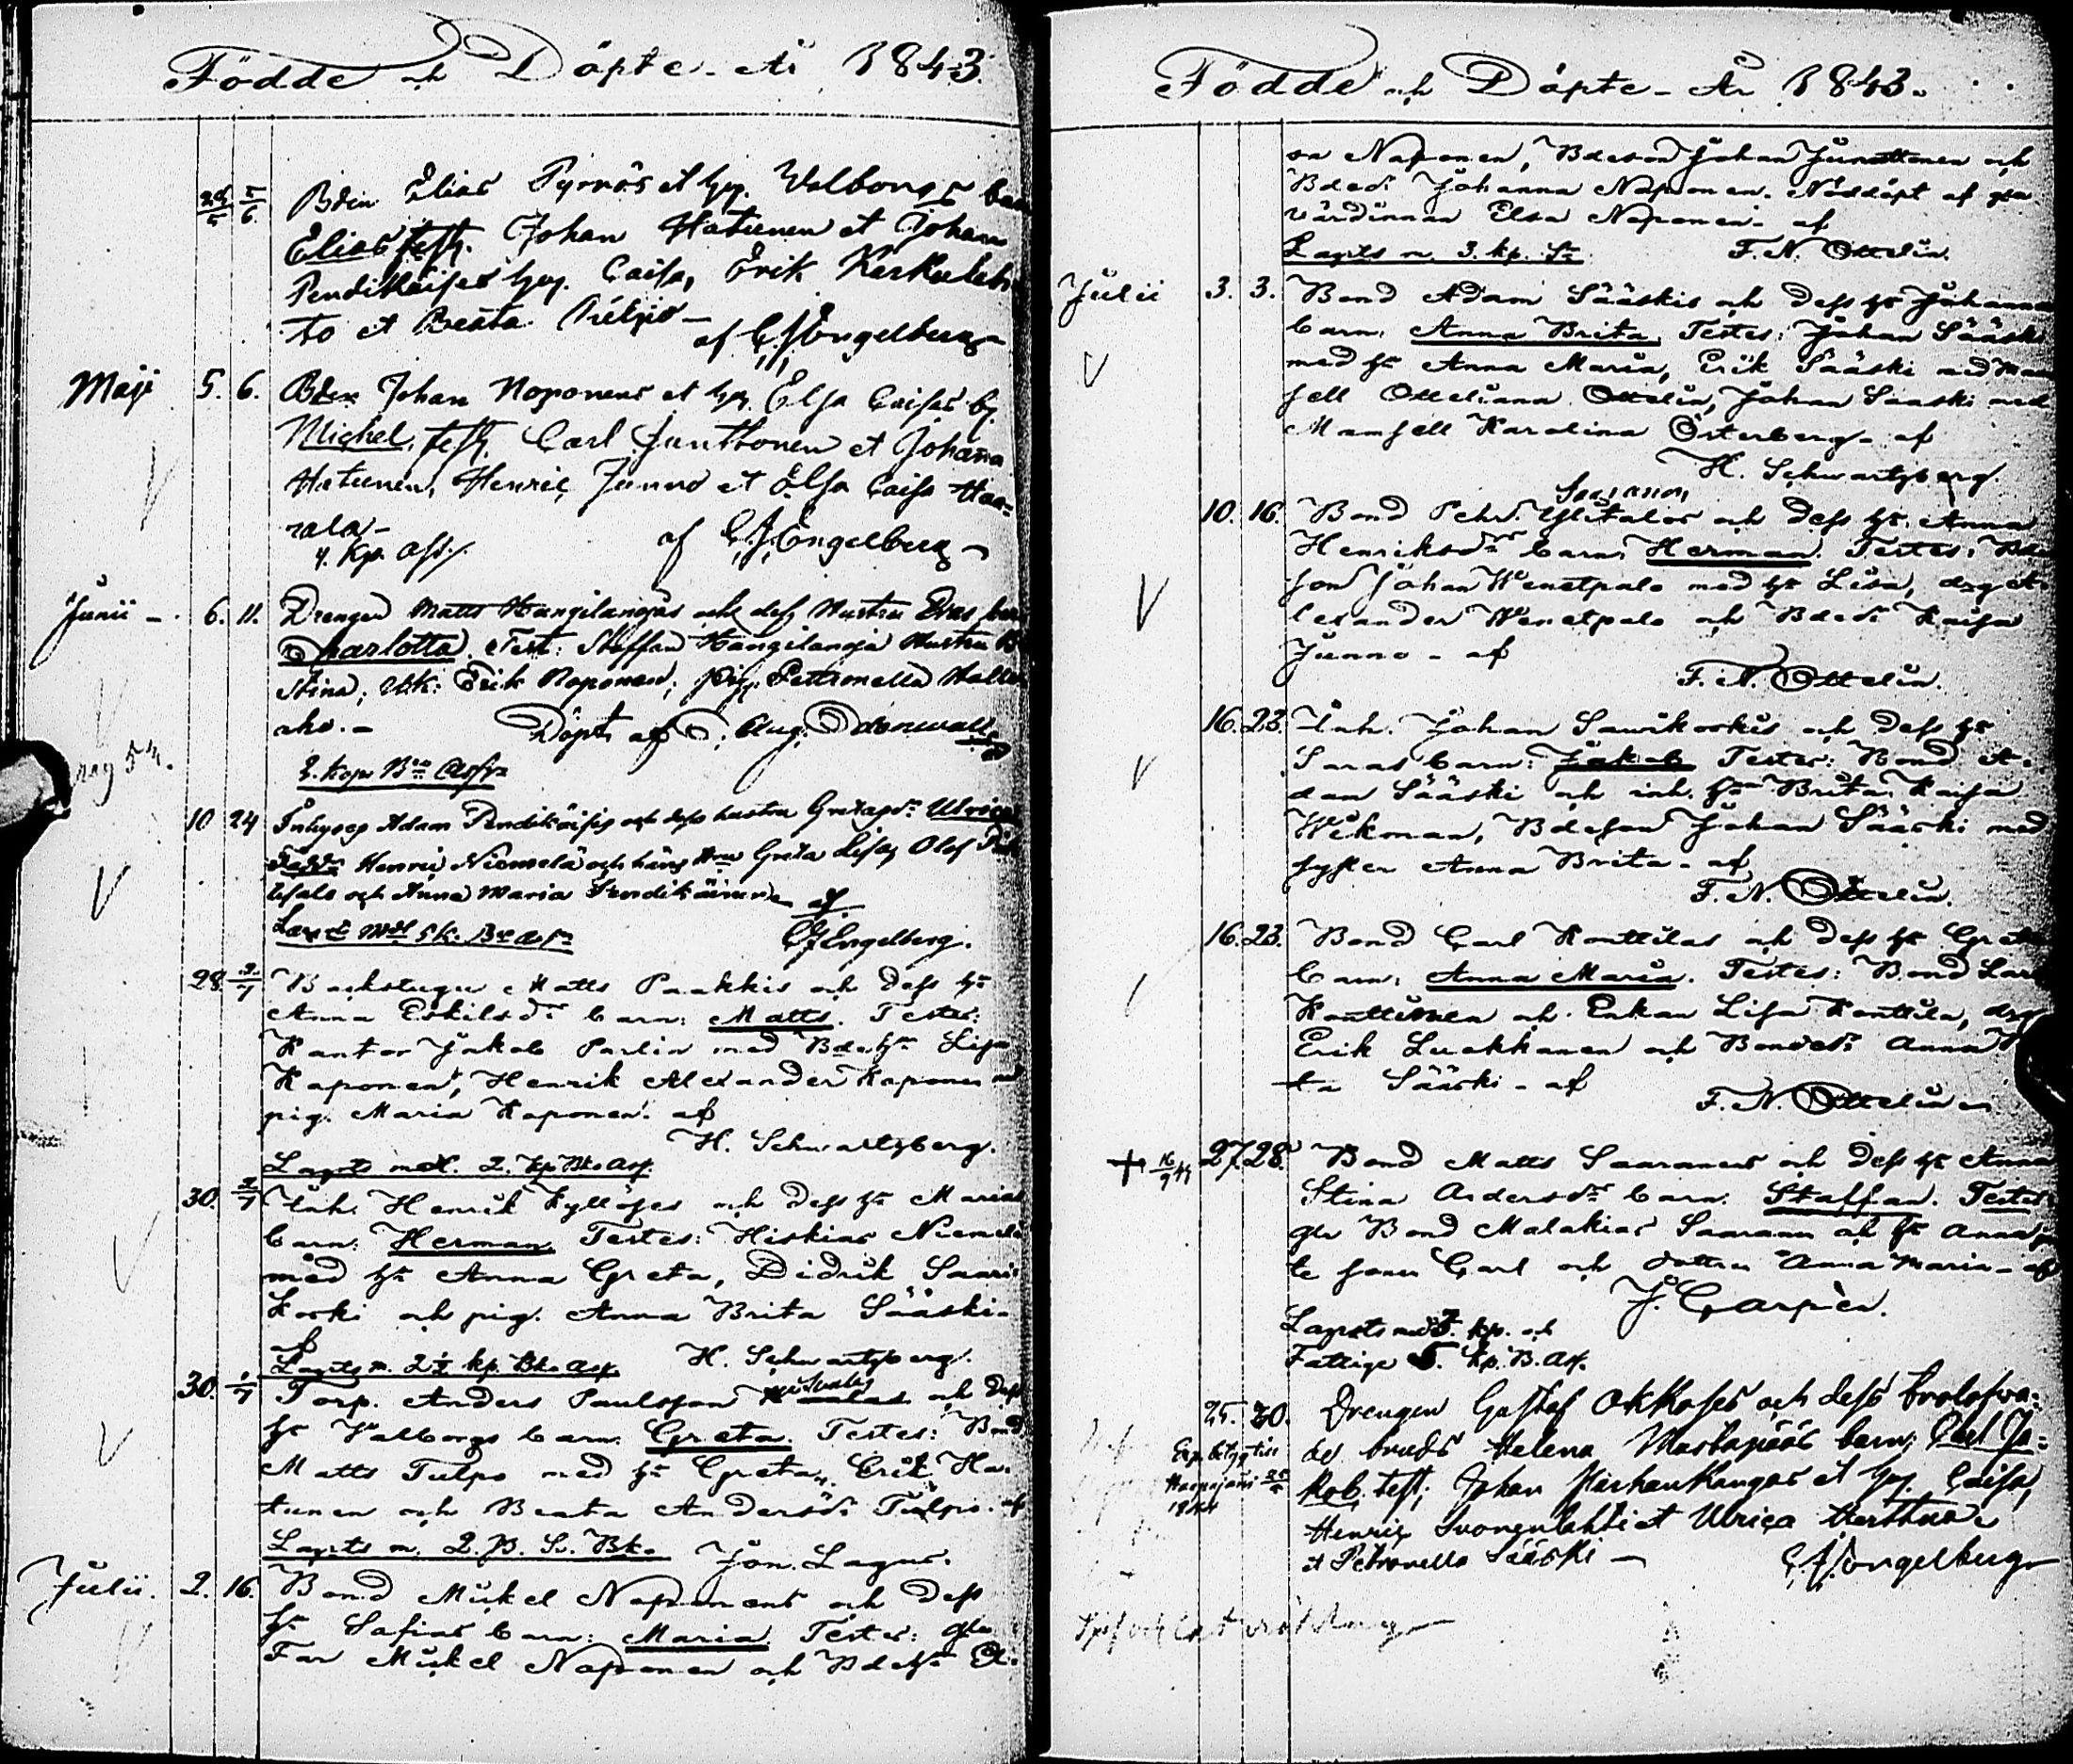 Födde och Döpte - År 1843.
29/5 5/6 Bdn Elias Pyrrös et hp. Walborgs barn
Elias, test. Johan Hatunen et Johan
Pendikäises hp. Caisa, Erik Kerkeleh
to et Beata -
af C. J. Engelberg
Maji 5. 6. Bdn Johan Noponens et hp. Elsa Caisas b.
Michel, test. Carl Junttonen et Johaña
Hatunen, Henric Junno et Elsa Caisa Haa=
rala -
4. Kp. Ass. af C. J. Engelberg
Junii - 6. 11. Drengen Matts Hangilanojas och dess Hustru Evas barn
Charlotta. Test: Staffan Hangilanoja Hustru
Stina, Erik Noponen, pig. Pettronella Halle
aho. - Döpt af
2. Kop. Bco Assgr
10 24 Inhyses Adam Pendikäises och dess hustru Gretas dr Ulrica
Henric Niemelä och hans hru Greta Lisa, Olof
och Anna Maria Pendikäinen af
5 k. Bco C J Engelberg.
28 2/7 Backstugu Matts Paakkis och dess hr
Anna Eskilsdr barn: Matts. Testes:
Kantor Jakob Parlin med Bdehr Lisa
Kaponen, Henrik Alexander Kaponen med
pig. Maria Kaponen. af
H. Schwartzberg.
Lagts med. 2. kp Bko Ass.
30. 2/7 Inh. Henrik Kyllöses och dess hr Marias
barn: Herman. Testes: Hiskias Niemelä
med hr Anna Greta, Didrik Saari
koski och pig. Anna Brita Sääski -
af
Lagts m. 2½ kp. Bko Ass. H. Schwartzberg.
30. 1/7 Torp. Anders Paulsson och dess
hr Valborgs barn: Greta. Testes: Bond
Matts Tulpo med hr Greta, Erik Ha-
tunen och Beata Andersdr Tulpo. af
Lagts m. 2. B. S. Bko Jon. Lagus.
Julii. 2. 16. Bond Mickel Noponens och dess
hr Sofias barn: Maria. Testes: gla
Far Mickel Noponen och Bdehr El-
Födde och Döpte - År 1843.
sa Noponen, Bdeson Johan Junttonen och
Bdedr Johanna Noponen. Nöddöpt af gla
värdinnan Elsa Noponen. af
Lagts m. 3. kp. Sr F. N. Ottelin.
Julii 3. 3. Bond Adam Sääskis och dess hr Johanna
barn: Anna Brita. Testes: Johan Sääski
med hr Anna Maria, Erik Sääski med Mam
sell Otteliana Ottelin, Johan Sääski med
Mamsell Karolina Österberg - af
H. Schwartzberg.
10. 16. Bond Pehr Ylitalos och dess hr Anna
Henriksdr barn: Herman. Testes: Bde
son Johan Wenetpalo med hr Lisa, drg A-
lexander Wenetpalo och Bdedr Kaisa
Junno - af
F. N. Ottelin.
16. 23. Inh. Johan Saarikoskis och dess hr
Saras barn: Jakob. Testes: Bond A-
dam Sääski och inh. hru Brita Kaisa
Wikman, Bdeson Johan Sääski med
syster Anna Brita - af
F. N. Ottelin.
16. 23. Bond Carl Konttilas och dess hr Greta
barn: Anna Maria. Testes: Bond Lars
Konttinen och Enkan Lisa Konttila, drg
Erik Luekkanen och Bondedr Anna
ta Sääski - af
F. N. Ottelin
+ 16/9 43 27. 28. Bond Matts Saaranens och dess hr Anna
Stina Andersdr barn: Staffan. Testes
gle Bond Malakias Saaranen och hr Anna
te sonen Carl och dottren Anna Maria - af
J. Carpén.
Lagts med 3. kp. och
Fattige 5. kp. B. Ass.
25. 30. Drengen Gustaf Okkoses och dess trolofva=
de bruds Helena Mustapääs barn: Carl Ja=
kob, test; Johan Härkenkangas et hp. Caisa,
Henric Suongenlahti et Ulrica Herttua
et Petronella Sääski -
C. J. Engelberg
Exp. betyg till
Haapajärvi
1844